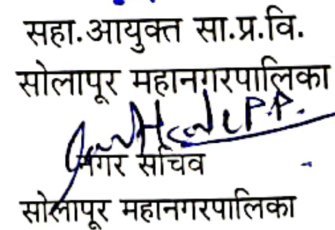 सहा.आयुक्त सा.प्र.वि.
सोलापूर महानगरपालिका
P.P.
नगर सचिव
सोलापूर महानगरपालिका